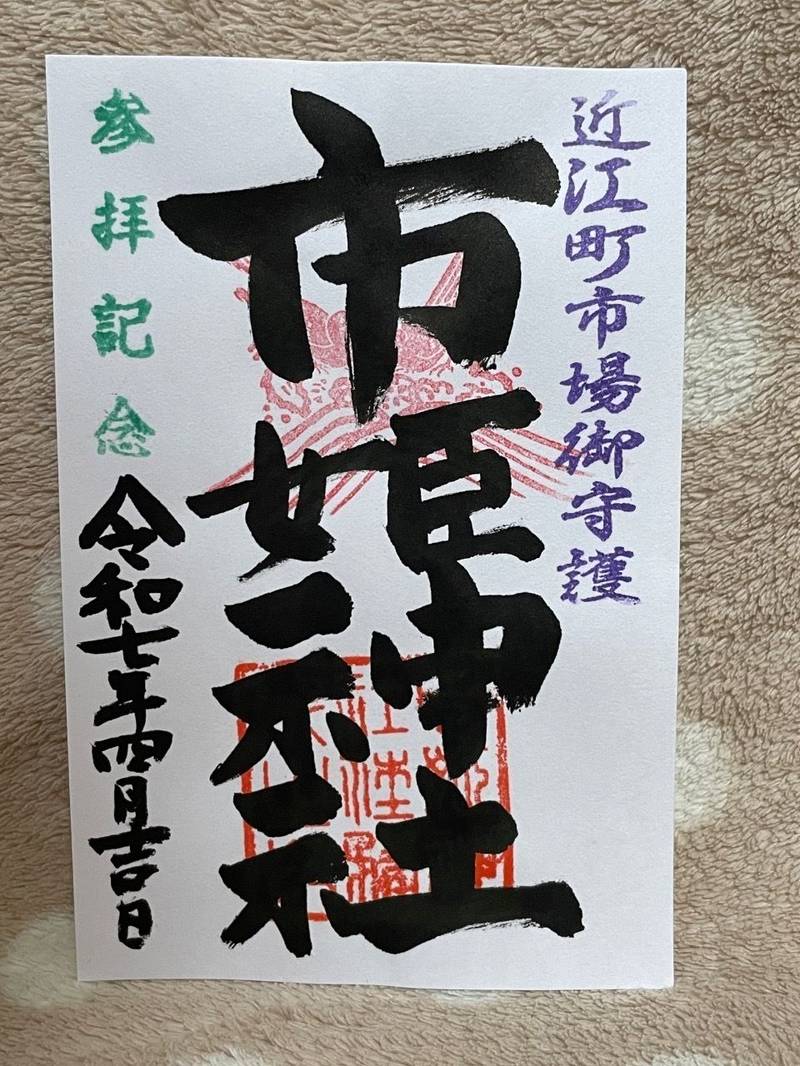 近江町市場御守護
市姫神社
参拝記念
令和七年四月吉日